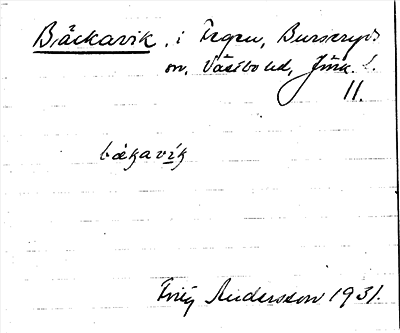 Bäckavik, i Fegen, Burseryds
sn, Västbo hd, Jönk. l.
11.
bákavík
Frity Andersson 1931.